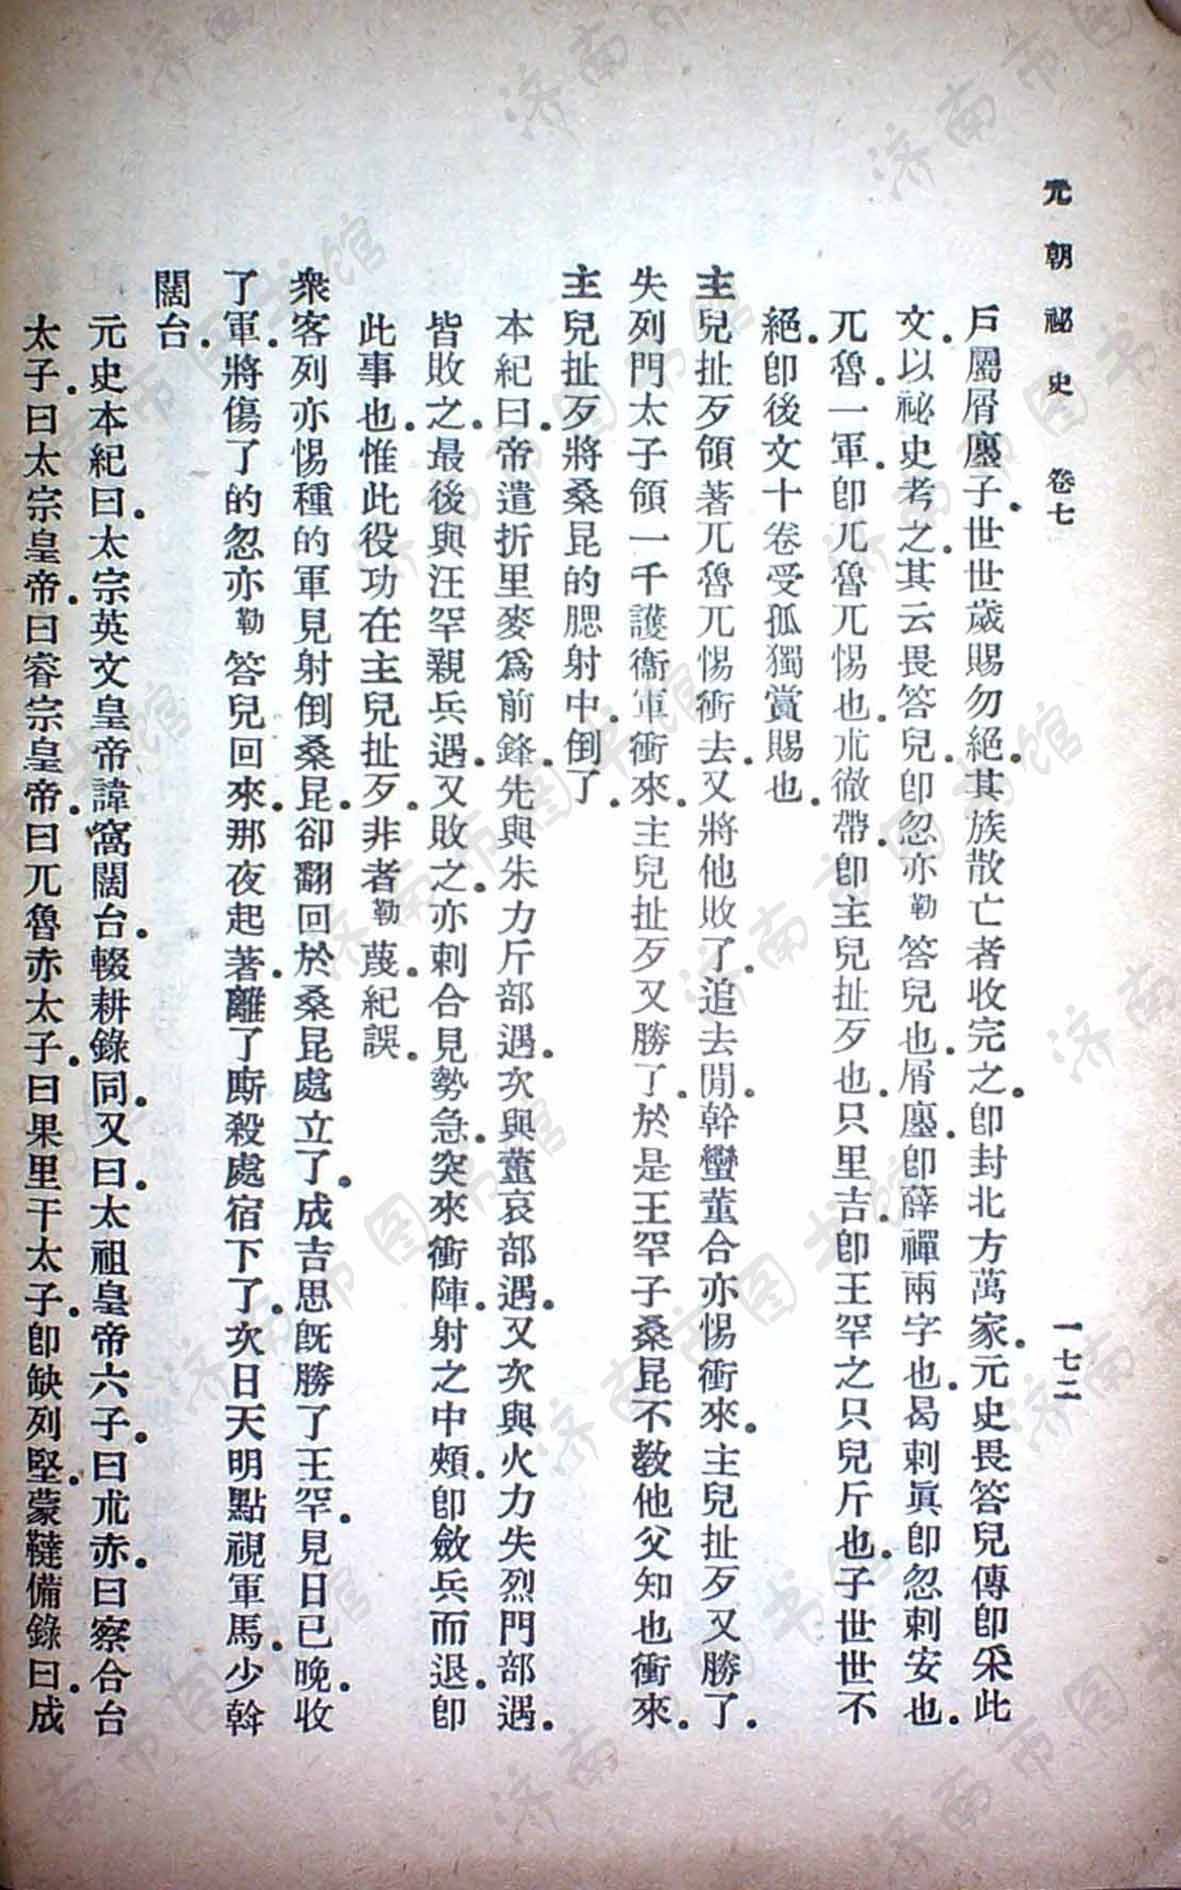 元朝祕史 卷七 一七二
戶屬屑廛子。世世歲賜勿絕。其族散亡者收完之。卽封北方萬家。元史畏答兒傳卽采此
文。以祕史考之。其云畏答兒。卽忽亦勒答兒也。屑廛。卽薛禪兩字也。曷刺眞卽忽刺安也。
兀魯一軍。卽兀魯兀惕也。朮徹帶。卽主兒扯歹也。只里吉。卽王罕之只兒斤也。子世世不
絕。卽後文十卷受孤獨賞賜也。
主兒扯歹領著兀魯兀惕衝去。又將他敗了。追去閒。斡蠻董合亦惕衝來。主兒扯歹又勝了。
失列門太子領一千護衞軍衝來。主兒扯歹又勝了。於是王罕子桑昆不教他父知也衝來。
主兒扯歹將桑昆的腮射中。倒了。
本紀曰。帝遣折里麥爲前鋒。先與朱力斤部遇。次與董哀部遇。又次與火力失烈門部遇。
皆敗之。最後與汪罕親兵遇。又敗之。亦刺合見勢急。突來衝陣。射之中頰。卽斂兵而退。卽
此事也。惟此役功在主兒扯歹。非者勒蔑。紀誤。
衆客列亦惕種的軍見射倒桑昆。卻翻回於桑昆處立了。成吉思旣勝了王罕。見日已晚。收
了軍。將傷了的忽亦勒答兒回來。那夜起著。離了廝殺處宿下了。次日天明點視軍馬。少斡
闊台。
元史本紀曰。太宗英文皇帝諱窩闊台。輟耕錄同。又曰。太祖皇帝六子。曰朮赤。曰察合台
太子。曰太宗皇帝。曰睿宗皇帝。曰兀魯赤太子。曰果里干太子。卽缺列堅。蒙韃備錄曰成
济南市图书馆